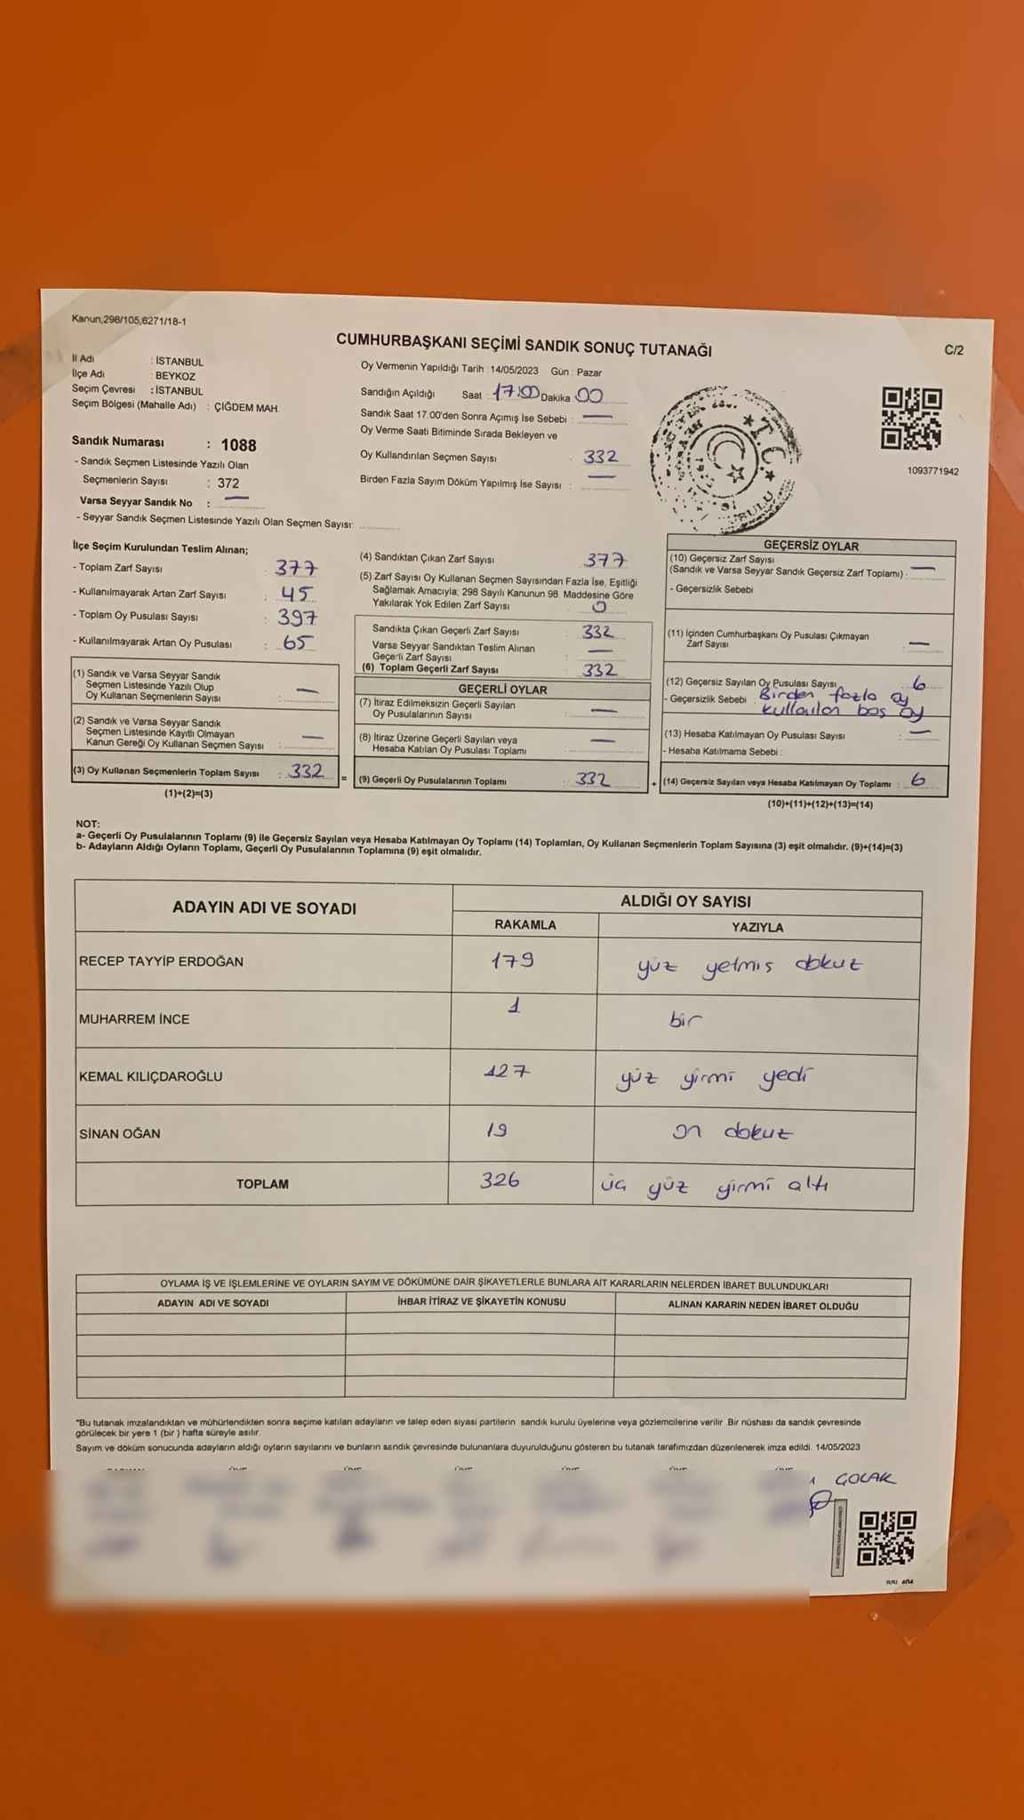 Kanun,298/105,6271/18-1
CUMHURBAŞKANI SEÇİMİ SANDIK SONUÇ TUTANAĞI
C/2
İl Adı : İSTANBUL
İlçe Adı : BEYKOZ
Seçim Çevresi : İSTANBUL
Seçim Bölgesi (Mahalle Adı) : ÇİĞDEM MAH
Sandık Numarası : 1088
- Sandık Seçmen Listesinde Yazılı Olan
Seçmenlerin Sayısı : 372
Varsa Seyyar Sandık No : —
- Seyyar Sandık Seçmen Listesinde Yazılı Olan Seçmen Sayısı:
Oy Vermenin Yapıldığı Tarih : 14/05/2023 Gün : Pazar
Sandığın Açıldığı Saat 17:00 Dakika 00
Sandık Saat 17.00'den Sonra Açımış İse Sebebi : —
Oy Verme Saati Bitiminde Sırada Bekleyen ve
Oy Kullandırılan Seçmen Sayısı : 332
Birden Fazla Sayım Döküm Yapılmış İse Sayısı : —
T.C.
1093771942
İlçe Seçim Kurulundan Teslim Alınan;
- Toplam Zarf Sayısı : 377
- Kullanılmayarak Artan Zarf Sayısı : 45
- Toplam Oy Pusulası Sayısı : 397
- Kullanılmayarak Artan Oy Pusulası : 65
(1) Sandık ve Varsa Seyyar Sandık
Seçmen Listesinde Yazılı Olup
Oy Kullanan Seçmenlerin Sayısı : —
(2) Sandık ve Varsa Seyyar Sandık
Seçmen Listesinde Kayıtlı Olmayan
Kanun Gereği Oy Kullanan Seçmen Sayısı : —
(3) Oy Kullanan Seçmenlerin Toplam Sayısı : 332
(1)+(2)=(3)
(4) Sandıktan Çıkan Zarf Sayısı 377
(5) Zarf Sayısı Oy Kullanan Seçmen Sayısından Fazla İse, Eşitliği
Sağlamak Amacıyla; 298 Sayılı Kanunun 98. Maddesine Göre
Yakılarak Yok Edilen Zarf Sayısı : 0
Sandıkta Çıkan Geçerli Zarf Sayısı : 332
Varsa Seyyar Sandıktan Teslim Alınan
Geçerli Zarf Sayısı : —
(6) Toplam Geçerli Zarf Sayısı : 332
GEÇERLİ OYLAR
(7) İtiraz Edilmeksizin Geçerli Sayılan
Oy Pusulalarının Sayısı : —
(8) İtiraz Üzerine Geçerli Sayılan veya
Hesaba Katılan Oy Pusulası Toplamı : —
= (9) Geçerli Oy Pusulalarının Toplamı : 332
GEÇERSİZ OYLAR
(10) Geçersiz Zarf Sayısı
(Sandık ve Varsa Seyyar Sandık Geçersiz Zarf Toplamı) : —
- Geçersizlik Sebebi :
(11) İçinden Cumhurbaşkanı Oy Pusulası Çıkmayan
Zarf Sayısı : —
(12) Geçersiz Sayılan Oy Pusulası Sayısı : 6
- Geçersizlik Sebebi : Birden fazla oy
kullanılan boş oy
(13) Hesaba Katılmayan Oy Pusulası Sayısı : —
- Hesaba Katılmama Sebebi :
+ (14) Geçersiz Sayılan veya Hesaba Katılmayan Oy Toplamı : 6
(10)+(11)+(12)+(13)=(14)
NOT:
a- Geçerli Oy Pusulalarının Toplamı (9) ile Geçersiz Sayılan veya Hesaba Katılmayan Oy Toplamı (14) Toplamları, Oy Kullanan Seçmenlerin Toplam Sayısına (3) eşit olmalıdır. (9)+(14)=(3)
b- Adayların Aldığı Oyların Toplamı, Geçerli Oy Pusulalarının Toplamına (9) eşit olmalıdır.
ADAYIN ADI VE SOYADI
ALDIĞI OY SAYISI
RAKAMLA YAZIYLA
RECEP TAYYİP ERDOĞAN 179 yüz yetmiş dokuz
MUHARREM İNCE 1 bir
KEMAL KILIÇDAROĞLU 127 yüz yirmi yedi
SİNAN OĞAN 19 on dokuz
TOPLAM 326 üç yüz yirmi altı
OYLAMA İŞ VE İŞLEMLERİNE VE OYLARIN SAYIM VE DÖKÜMÜNE DAİR ŞİKAYETLERLE BUNLARA AİT KARARLARIN NELERDEN İBARET BULUNDUKLARI
ADAYIN ADI VE SOYADI İHBAR İTİRAZ VE ŞİKAYETİN KONUSU ALINAN KARARIN NEDEN İBARET OLDUĞU
"Bu tutanak imzalandıktan ve mühürlendikten sonra seçime katılan adayların ve talep eden siyasi partilerin sandık kurulu üyelerine veya gözlemcilerine verilir. Bir nüshası da sandık çevresinde
görülecek bir yere 1 (bir) hafta süreyle asılır.
Sayım ve döküm sonucunda adayların aldığı oyların sayılarını ve bunların sandık çevresinde bulunanlara duyurulduğunu gösteren bu tutanak tarafımızdan düzenlenerek imza edildi. 14/05/2023
ÇOLAK